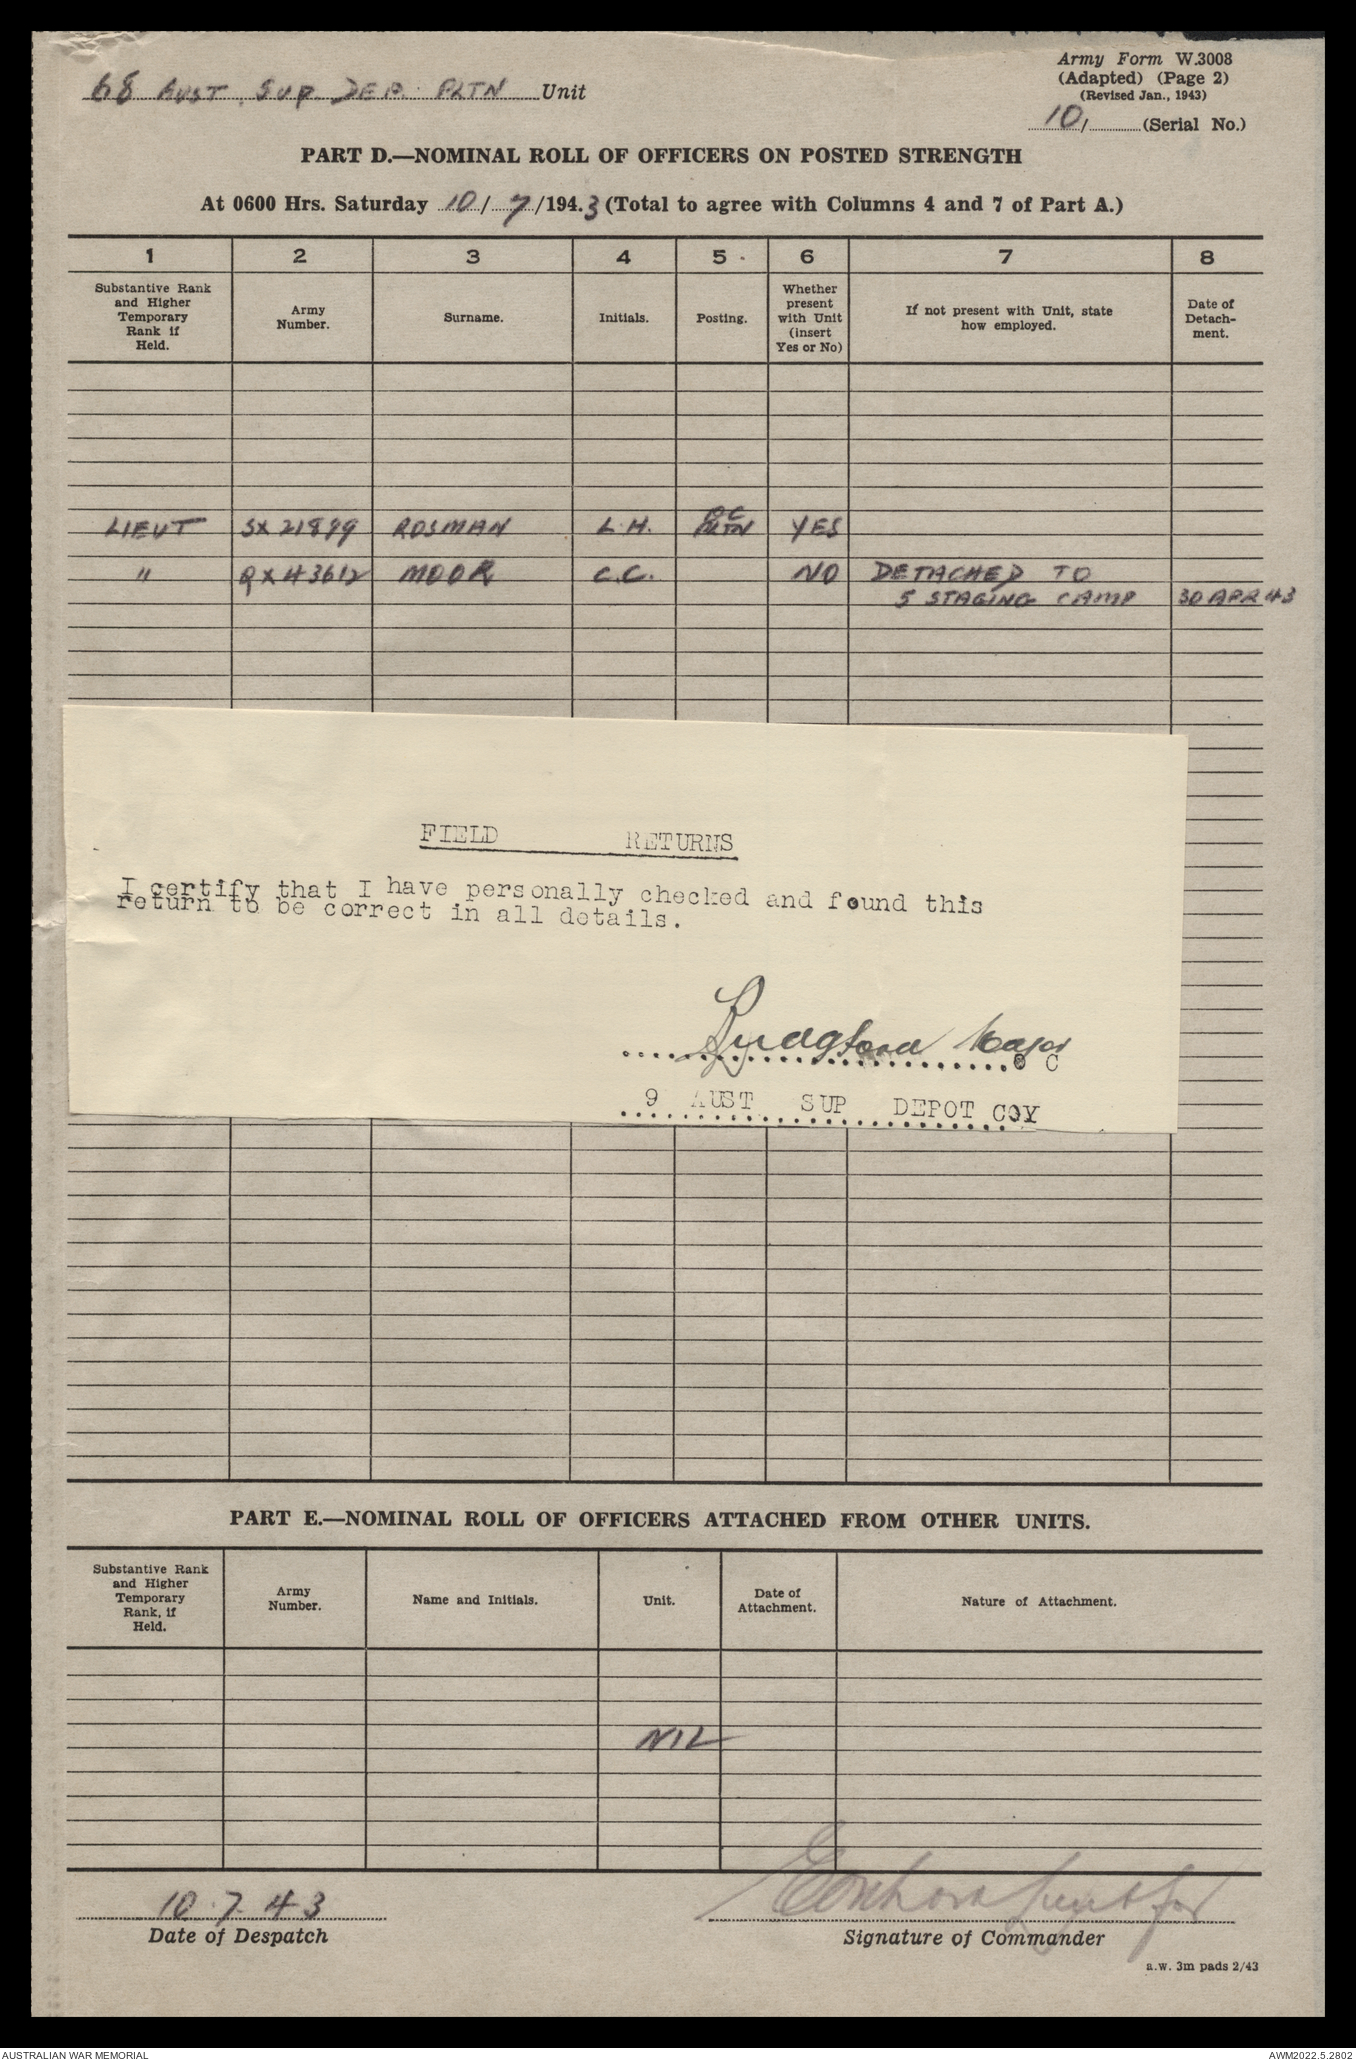 Army Form W.3008
68 AUST. SUP. DEP. PLTN Unit
(Adapted) (Page 2)
(Revised Jan., 1943)
10/ (Serial No.)
PART D.—NOMINAL ROLL OF OFFICERS ON POSTED STRENGTH
At 0600 Hrs. Saturday 10/7/1943 (Total to agree with Columns 4 and 7 of Part A.)
1 2 3 4 5 6 7 8
Substantive Rank and Higher Temporary Rank if Held.
Army Number.
Surname.
Initials.
Posting.
Whether present with Unit (insert Yes or No)
If not present with Unit, state how employed.
Date of Detach- ment.
LIEUT SX 21899 ROSMAN L.H. OC PLTN YES
" QX 43612 MOOR C.C. NO DETACHED TO
5 STAGING CAMP 30 APR 43
FIELD RETURNS
I certify that I have personally checked and found this
return to be correct in all details.
Major
O C
9 AUST SUP DEPOT COY
PART E.—NOMINAL ROLL OF OFFICERS ATTACHED FROM OTHER UNITS.
Substantive Rank and Higher Temporary Rank, if Held.
Army Number.
Name and Initials.
Unit.
Date of Attachment.
Nature of Attachment.
NIL
10.7.43
Date of Despatch
Signature of Commander
a.w. 3m pads 2/43
AUSTRALIAN WAR MEMORIAL
AWM2022.5.2802